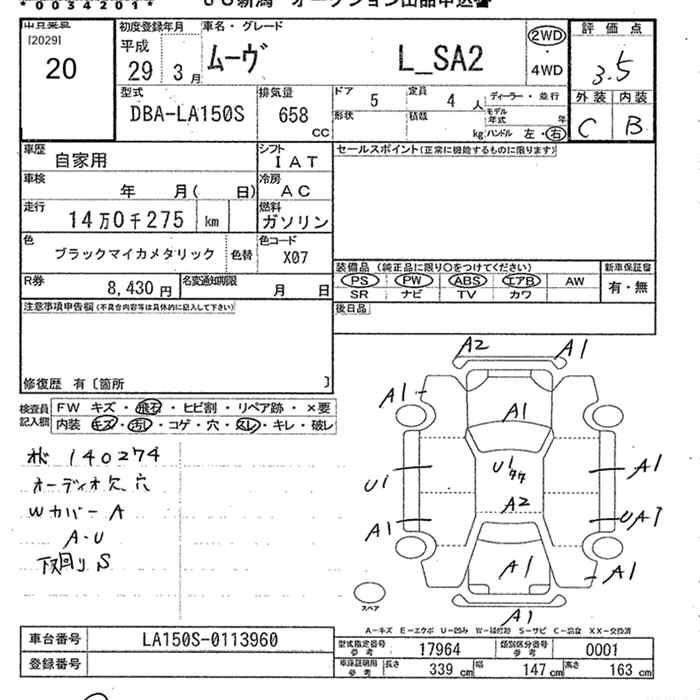 *00342014*
[2029]
20
初度登録年月
平成
29年 3月
車名・グレード
ムーヴ L_SA2
2WD
・
4WD
評価点
3.5
外装 内装
C B
型式
DBA-LA150S
排気量
658
CC
ドア 5 定員 4人
形状 積載 kg
ディーラー・並行
モデル年式 年
ハンドル 左・右
車歴
自家用
シフト
IAT
セールスポイント(正常に機能するものに限ります)
車検
年 月( 日)
冷房
AC
走行
14万0千275 km
燃料
ガソリン
色
ブラックマイカメタリック
色替
色コード
X07
装備品 (純正品に限り○をつけてください)
PS PW ABS エアB AW
SR ナビ TV カワ
新車保証書
有・無
R券
8,430円
名変通知期限
月 日
後日品
注意事項申告欄(不具合内容等は具体的に記入して下さい)
修復歴 有〔箇所 〕
検査員記入欄
FW キズ・飛石・ヒビ割・リペア跡・×要
内装 キズ・汚れ・コゲ・穴・スレ・キレ・破レ
140274
オーディオ欠 穴
Wカバー A
A・U
下回り S
A2 A1
A1
A1
U1
U1
A1
A2
A1
UA1
A1
A1
A1
スペア
A-キズ E-エクボ U-凹み W-補修跡 S-サビ C-腐食 XX-交換済
車台番号
LA150S-0113960
登録番号
型式指定番号
参考
17964
類別区分番号
参考
0001
車庫証明用
参考
長さ 339cm 幅 147cm 高さ 163cm